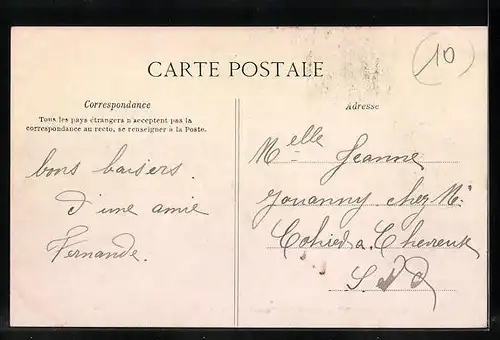 10
CARTE POSTALE
Correspondance
Tous les pays étrangers n'acceptent pas la
correspondance au recto, se renseigner à la Poste.
bons baisers.
d'une amie
Fernande.
Adresse
Melle Jeanne
Jouanny chez Mr
a Chevreuse